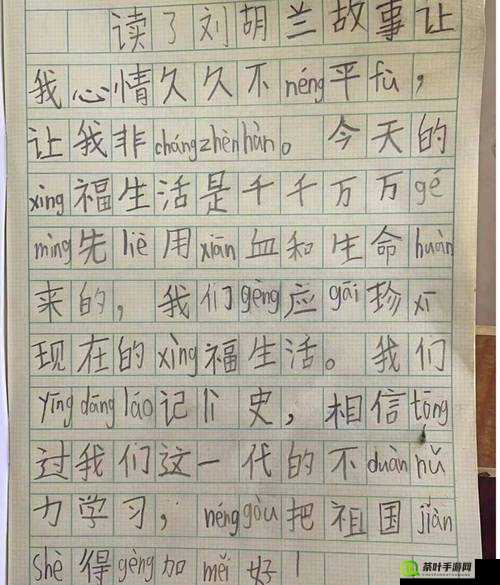 读了刘胡兰故事让
我心情久久不néng平fù，
让我非chángzhènhàn。今天的
xìng福生活是千千万万gé
mìng先liè用xiān血和生命huàn
来的，我们gèng应gāi珍xī
现在的xìng福生活。我们
yīng dāng láo记lì史，相信tōng
过我们这一代的不duàn nǔ
力学习，néng gòu把祖国jiàn
shè得gèng加měi好！
茶叶手游网